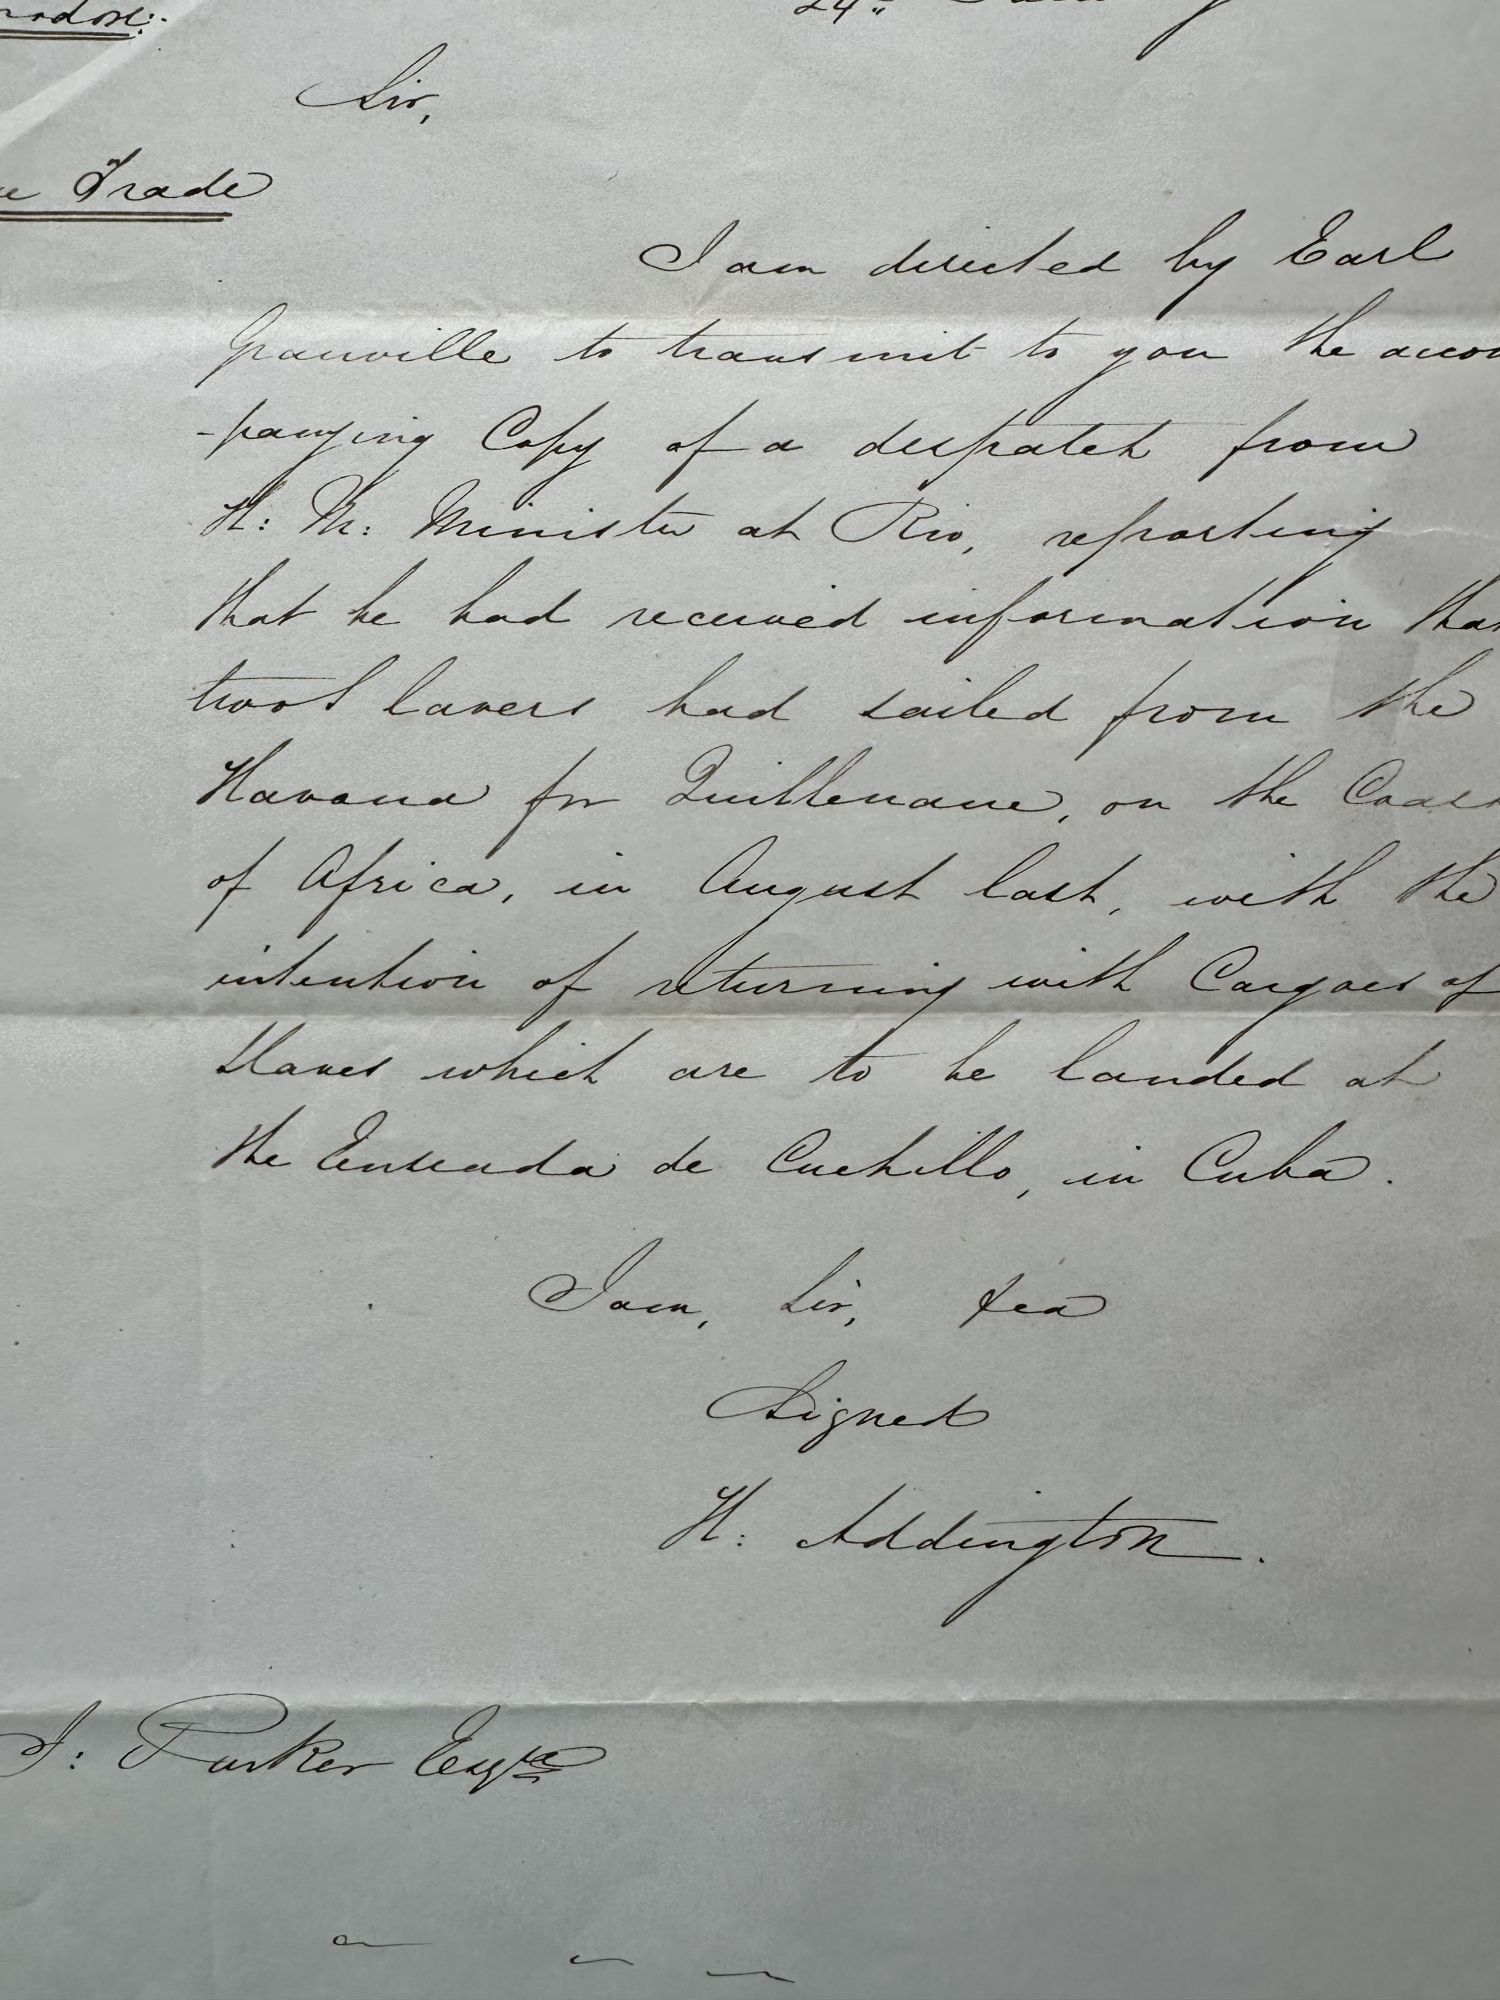 24th
Sir,
Trade
I am directed by Earl
Granville to transmit to you the accom
-panying Copy of a despatch from
H: M: Minister at Rio, reporting
that he had received information that
two Slavers had sailed from the
Havana for Quillemane, on the Coast
of Africa, in August last, with the
intention of returning with Cargoes of
Slaves which are to be landed at
the Ensenada de Cuchillo, in Cuba.
I am, Sir, &ca
Signed
H: Addington.
J: Parker Esqre